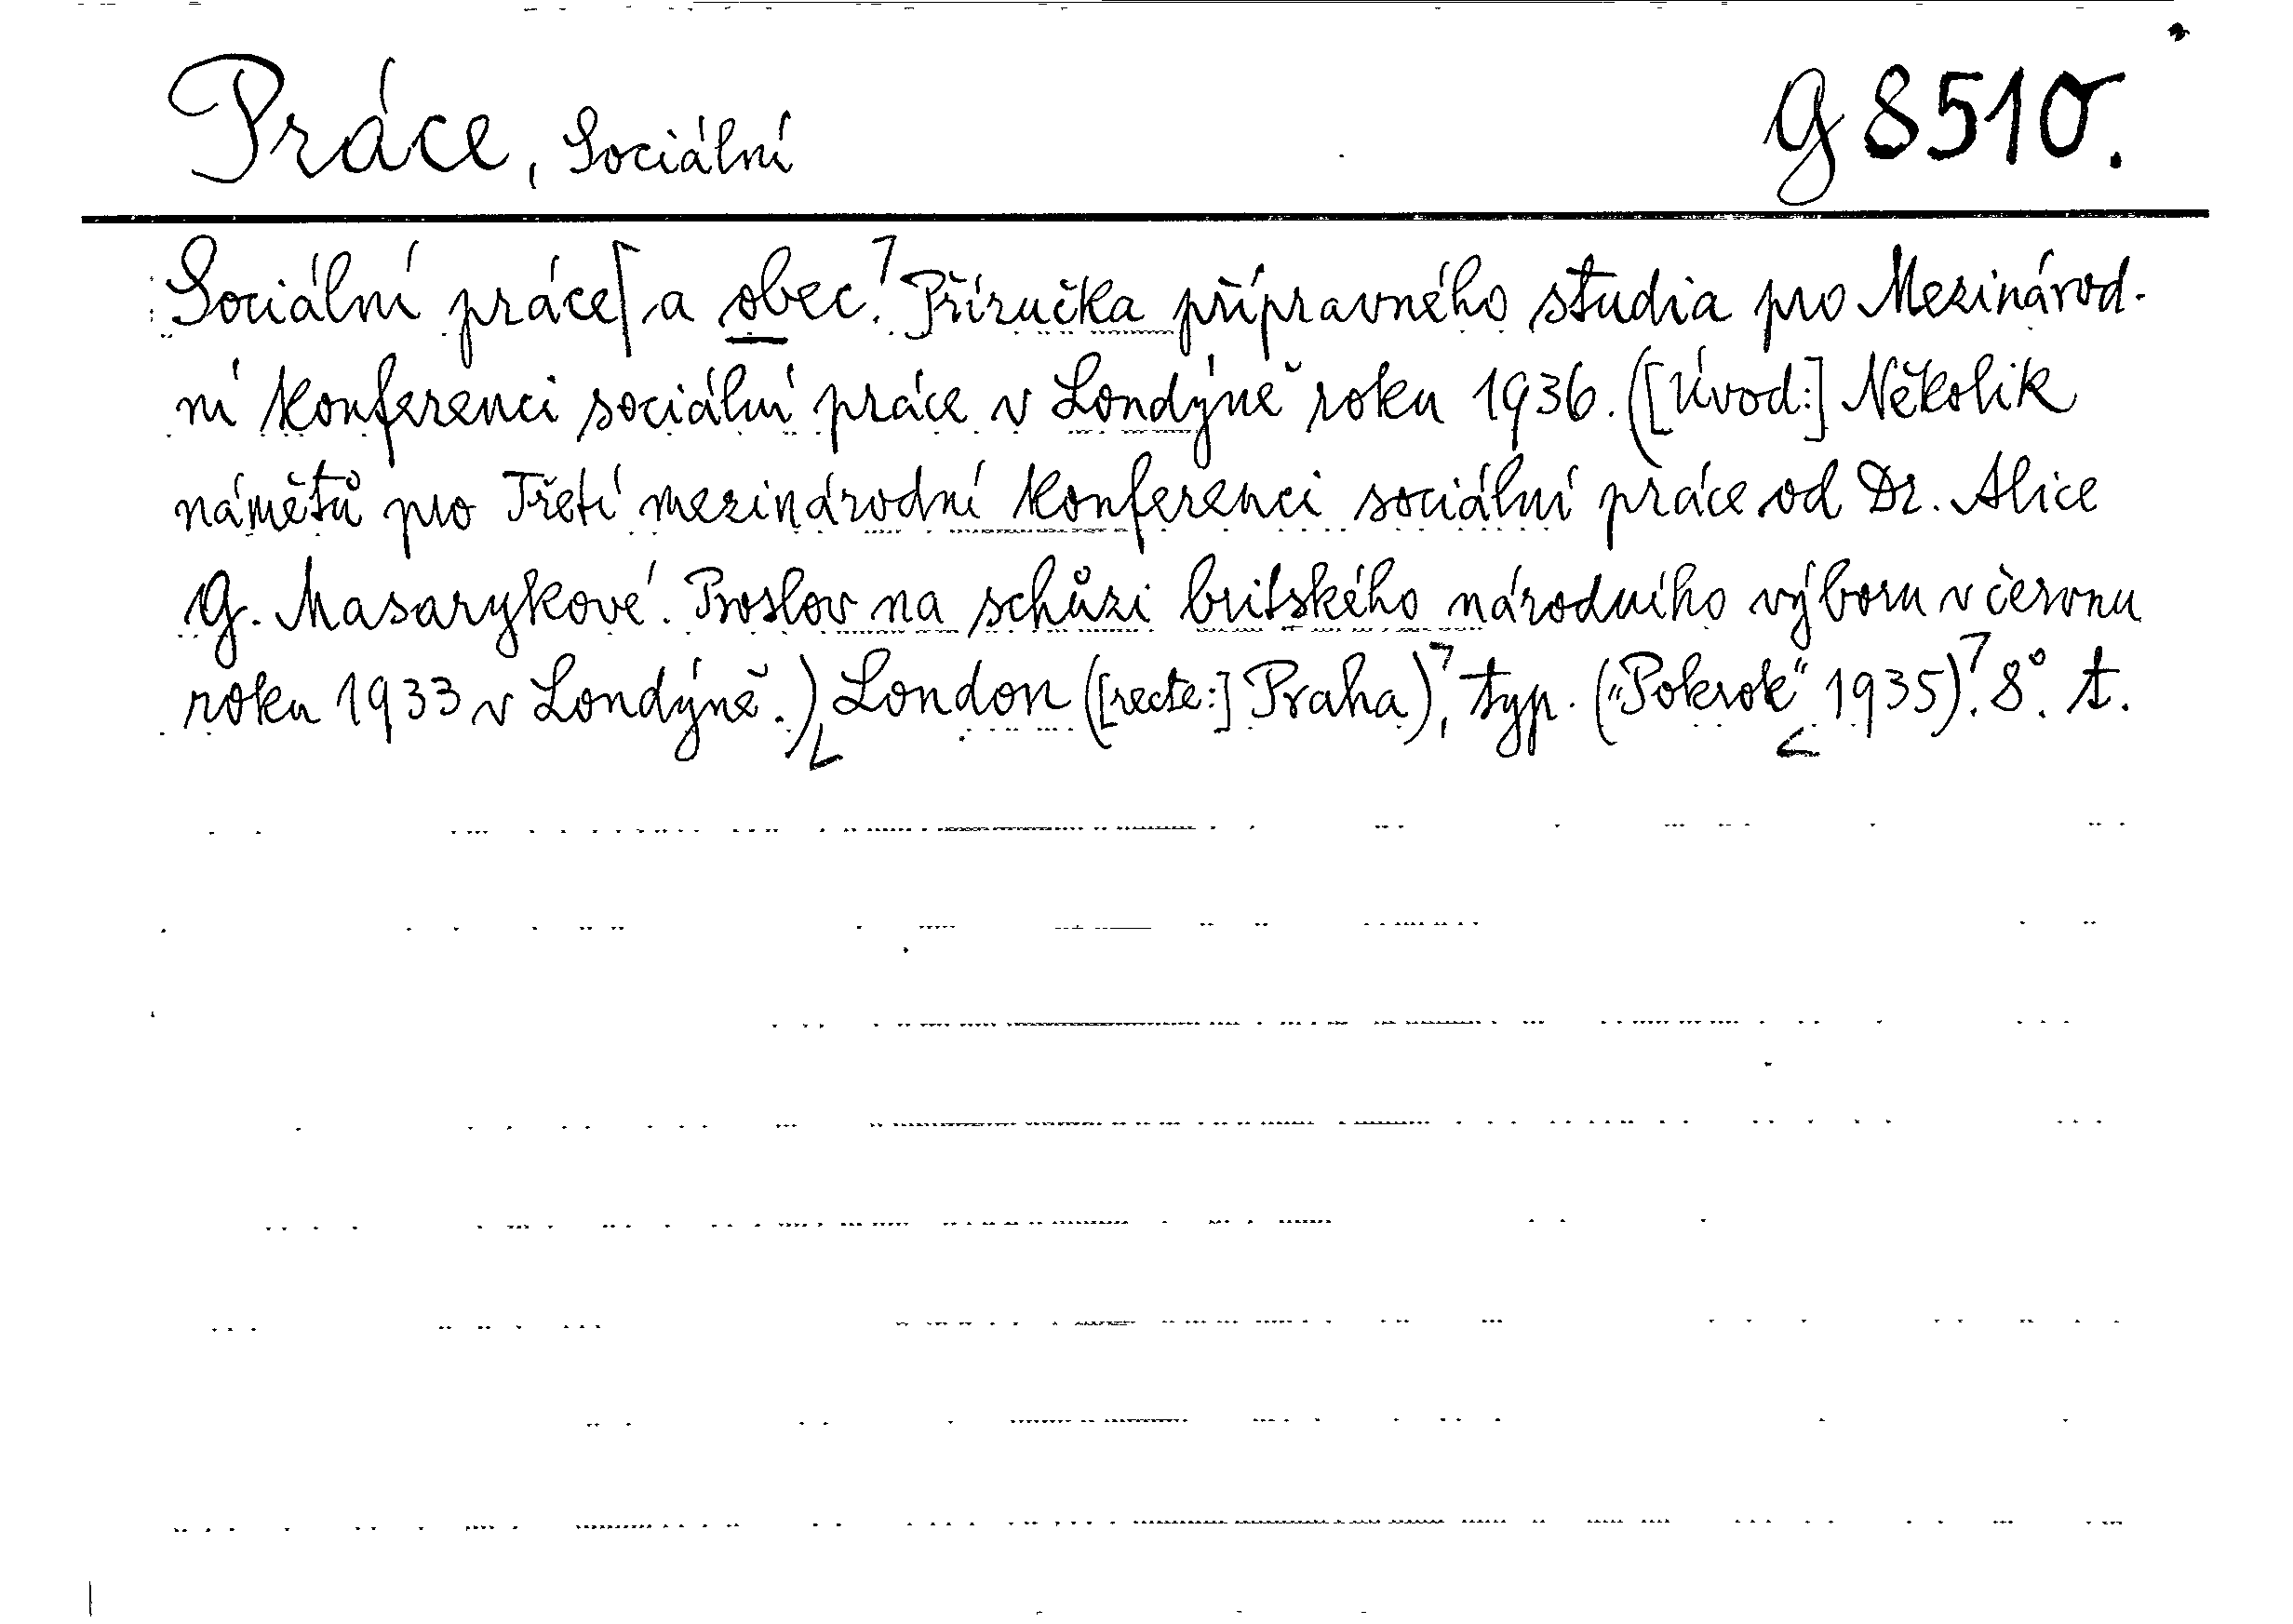 Práce, Sociální G 8510.
Sociální práce a obec. Příručka přípravného studia pro Mezinárod-
ní konferenci sociální práce v Londýně roku 1936. ([Úvod:] Několik
námětů pro Třetí mezinárodní konferenci sociální práce od Dr. Alice
G. Masarykové. Proslov na schůzi britského národního výboru v červnu
roku 1933 v Londýně.) London ([recte:] Praha), typ. („Pokrok“ 1935). 8°. t.